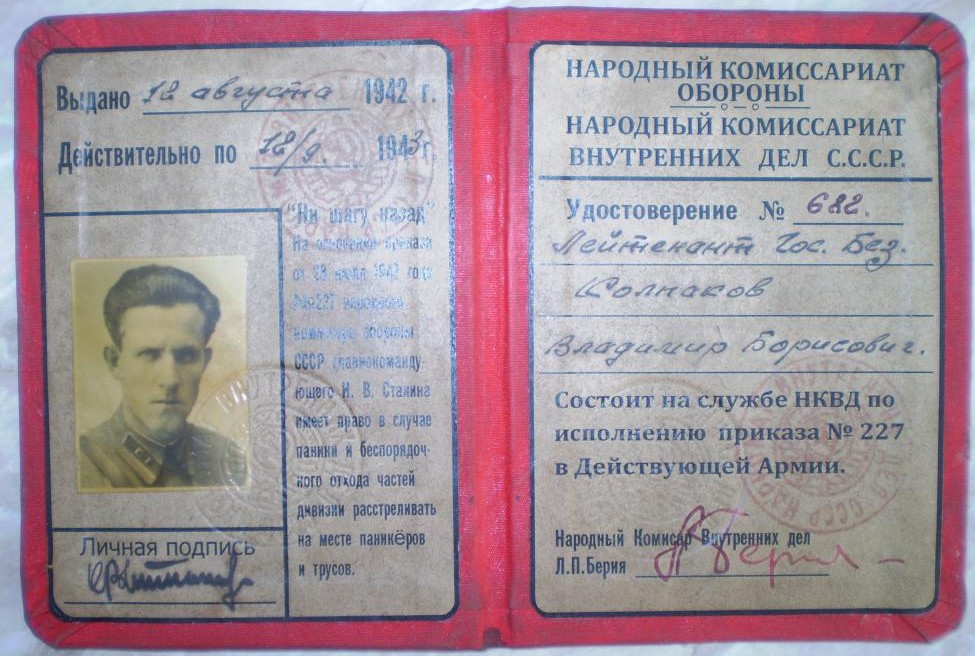 Выдано 12 августа 1942 г.
Действительно по 12/9. 1943 г.
"Ни шагу назад"
На основании приказа
от 28 июля 1942 года
№227 народного
комиссара обороны
СССР главнокоманду-
ющего И. В. Сталина
имеет право в случае
паники и беспорядоч-
ного отхода частей
дивизии расстреливать
на месте паникёров
и трусов.
Личная подпись
НАРОДНЫЙ КОМИССАРИАТ
ОБОРОНЫ
НАРОДНЫЙ КОМИССАРИАТ
ВНУТРЕННИХ ДЕЛ С.С.С.Р.
Удостоверение № 682.
Лейтенант Гос. Без.
Колпаков
Владимир Борисович.
Состоит на службе НКВД по
исполнению приказа № 227
в Действующей Армии.
Народный Комисар Внутренних дел
Л.П.Берия Л Берия